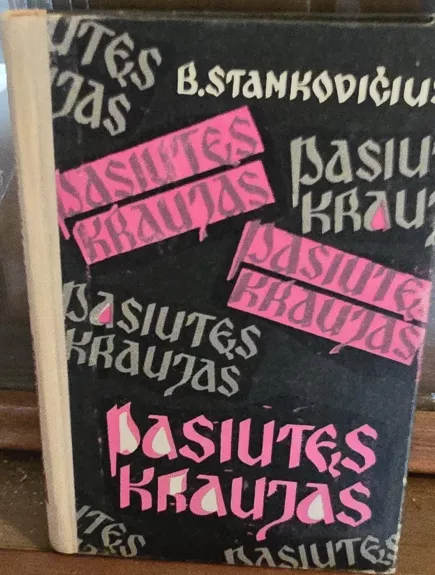 UTĘS
JAS
B.STANKOVIČIUS
PASIUTĘS
KRAUJAS
PASIUT
KRAUJ
PASIUTĘ
KRAUJAS
PASIUTĘS
KRAUJAS
PASIUTĘS
KRAUJAS
UTĘS
PASIUTĘS